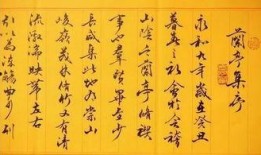 蘭亭集序
永和九年歲在癸丑
暮春之初會於會稽
山陰之蘭亭修禊
事也群賢畢至少
長咸集此地有崇山
峻嶺茂林修竹又有清
流激湍映帶左右
引以為流觴曲水列